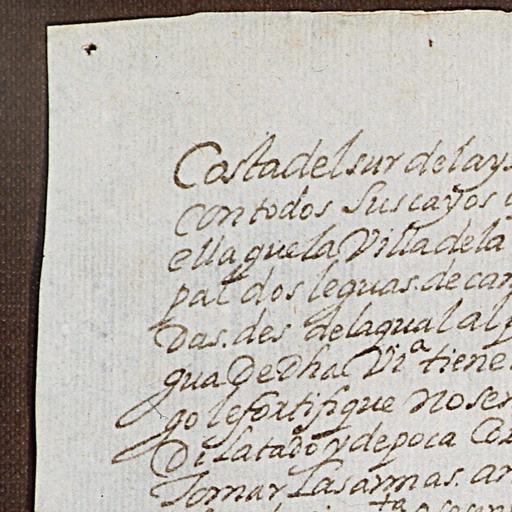 Costa del sur de la ys
con todos sus cayos
ella que la Villa de la
pal dos leguas. de
das. des de la qual al p
gua De dha Viª tiene
go le fortifique no ser
Dilatado y de poca Co
Tomar las armas. ar